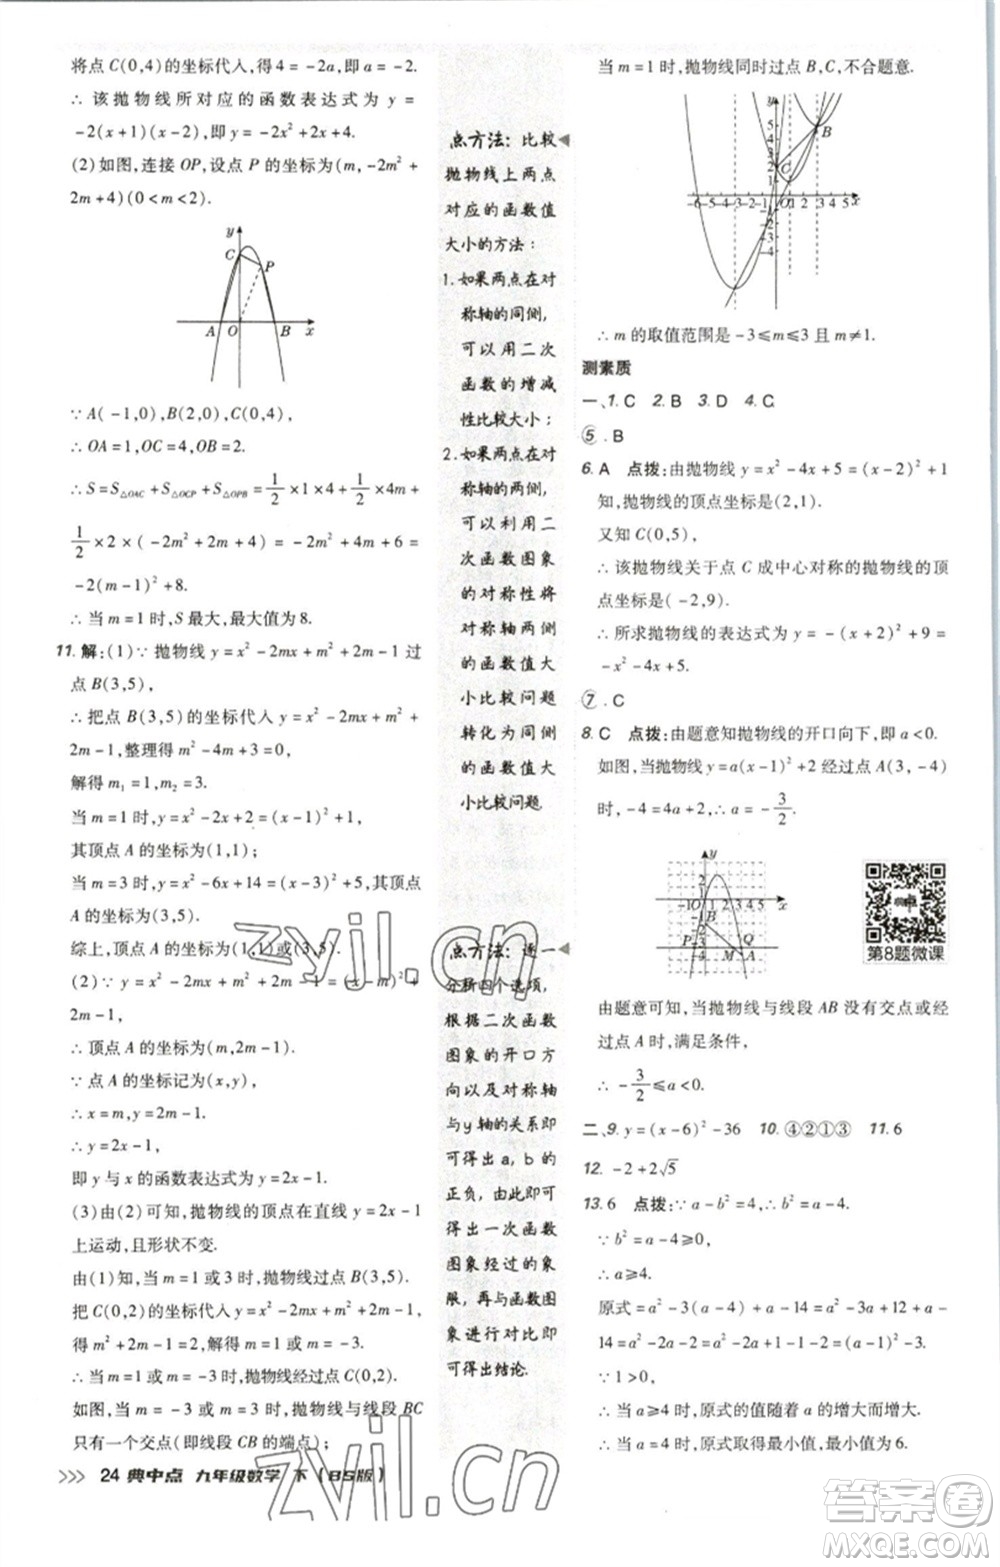 将点 C(0,4)的坐标代入,得 4=-2a,即 a=-2.
∴ 该抛物线所对应的函数表达式为 y=
-2(x+1)(x-2),即 y=-2x²+2x+4.
(2)如图,连接 OP,设点 P 的坐标为(m,-2m²+
2m+4)(0<m<2).
y
C
P
A O B x
∵ A(-1,0),B(2,0),C(0,4),
∴ OA=1,OC=4,OB=2.
∴ S=S△OAC+S△OCP+S△OPB=1/2×1×4+1/2×4m+
1/2×2×(-2m²+2m+4)=-2m²+4m+6=
-2(m-1)²+8.
∴ 当 m=1 时,S 最大,最大值为 8.
11. 解:(1)∵ 抛物线 y=x²-2mx+m²+2m-1 过
点 B(3,5),
∴ 把点 B(3,5)的坐标代入 y=x²-2mx+m²+
2m-1,整理得 m²-4m+3=0,
解得 m₁=1,m₂=3.
当 m=1 时,y=x²-2x+2=(x-1)²+1,
其顶点 A 的坐标为(1,1);
当 m=3 时,y=x²-6x+14=(x-3)²+5,其顶点
A 的坐标为(3,5).
综上,顶点 A 的坐标为(1,1)或(3,5).
(2)∵ y=x²-2mx+m²+2m-1=(x-m)²+
2m-1,
∴ 顶点 A 的坐标为(m,2m-1).
∵ 点 A 的坐标记为(x,y),
∴ x=m,y=2m-1.
∴ y=2x-1,
即 y 与 x 的函数表达式为 y=2x-1.
(3)由(2)可知,抛物线的顶点在直线 y=2x-1
上运动,且形状不变.
由(1)知,当 m=1 或 3 时,抛物线过点 B(3,5).
把 C(0,2)的坐标代入 y=x²-2mx+m²+2m-1,
得 m²+2m-1=2,解得 m=1 或 m=-3.
∴ 当 m=1 或-3 时,抛物线经过点 C(0,2).
如图,当 m=-3 或 3 时,抛物线与线段 BC
只有一个交点(即线段 CB 的端点);
点方法:比较
抛物线上两点
对应的函数值
大小的方法:
1. 如果两点在对
称轴的同侧,
可以用二次
函数的增减
性比较大小;
2. 如果两点在对
称轴的两侧,
可以利用二
次函数图象
的对称性将
对称轴两侧
的函数值大
小比较问题
转化为同侧
的函数值大
小比较问题.
点方法:逐一
分析四个选项,
根据二次函数
图象的开口方
向以及对称轴
与y轴的关系即
可得出 a,b 的
正负,由此即可
得出一次函数
图象经过的象
限,再与函数图
象进行对比即
可得出结论.
当 m=1 时,抛物线同时过点 B,C,不合题意.
y
5
4
3
2
1
B
C
-6 -5 -4 -3 -2 -1 O 1 2 3 4 5 x
-2
-3
-4
∴ m 的取值范围是 -3≤m≤3 且 m≠1.
测素质
一、1. C 2. B 3. D 4. C
⑤. B
6. A 点拨:由抛物线 y=x²-4x+5=(x-2)²+1
知,抛物线的顶点坐标是(2,1).
又知 C(0,5),
∴ 该抛物线关于点 C 成中心对称的抛物线的顶
点坐标是(-2,9).
∴ 所求抛物线的表达式为 y=-(x+2)²+9=
-x²-4x+5.
⑦. C
8. C 点拨:由题意知抛物线的开口向下,即 a<0.
如图,当抛物线 y=a(x-1)²+2 经过点 A(3,-4)
时,-4=4a+2,∴ a=-3/2.
y
2
1
-1 O 1 2 3 4 5 x
B
P -3 Q
-4 M A
第8题微课
由题意可知,当抛物线与线段 AB 没有交点或经
过点 A 时,满足条件,
∴ -3/2≤a<0.
二、9. y=(x-6)²-36 10. ④②①③ 11. 6
12. -2+2√5
13. 6 点拨:∵ a-b²=4,∴ b²=a-4.
∵ b²=a-4≥0,
∴ a≥4.
原式=a²-3(a-4)+a-14=a²-3a+12+a-
14=a²-2a-2=a²-2a+1-1-2=(a-1)²-3.
∵ 1>0,
∴ 当 a≥4 时,原式的值随着 a 的增大而增大.
∴ 当 a=4 时,原式取得最小值,最小值为 6.
>>> 24 典中点 九年级数学 下(BS版)
zyjl.cn
zyjl.cn
答案圈
MXQE.COM